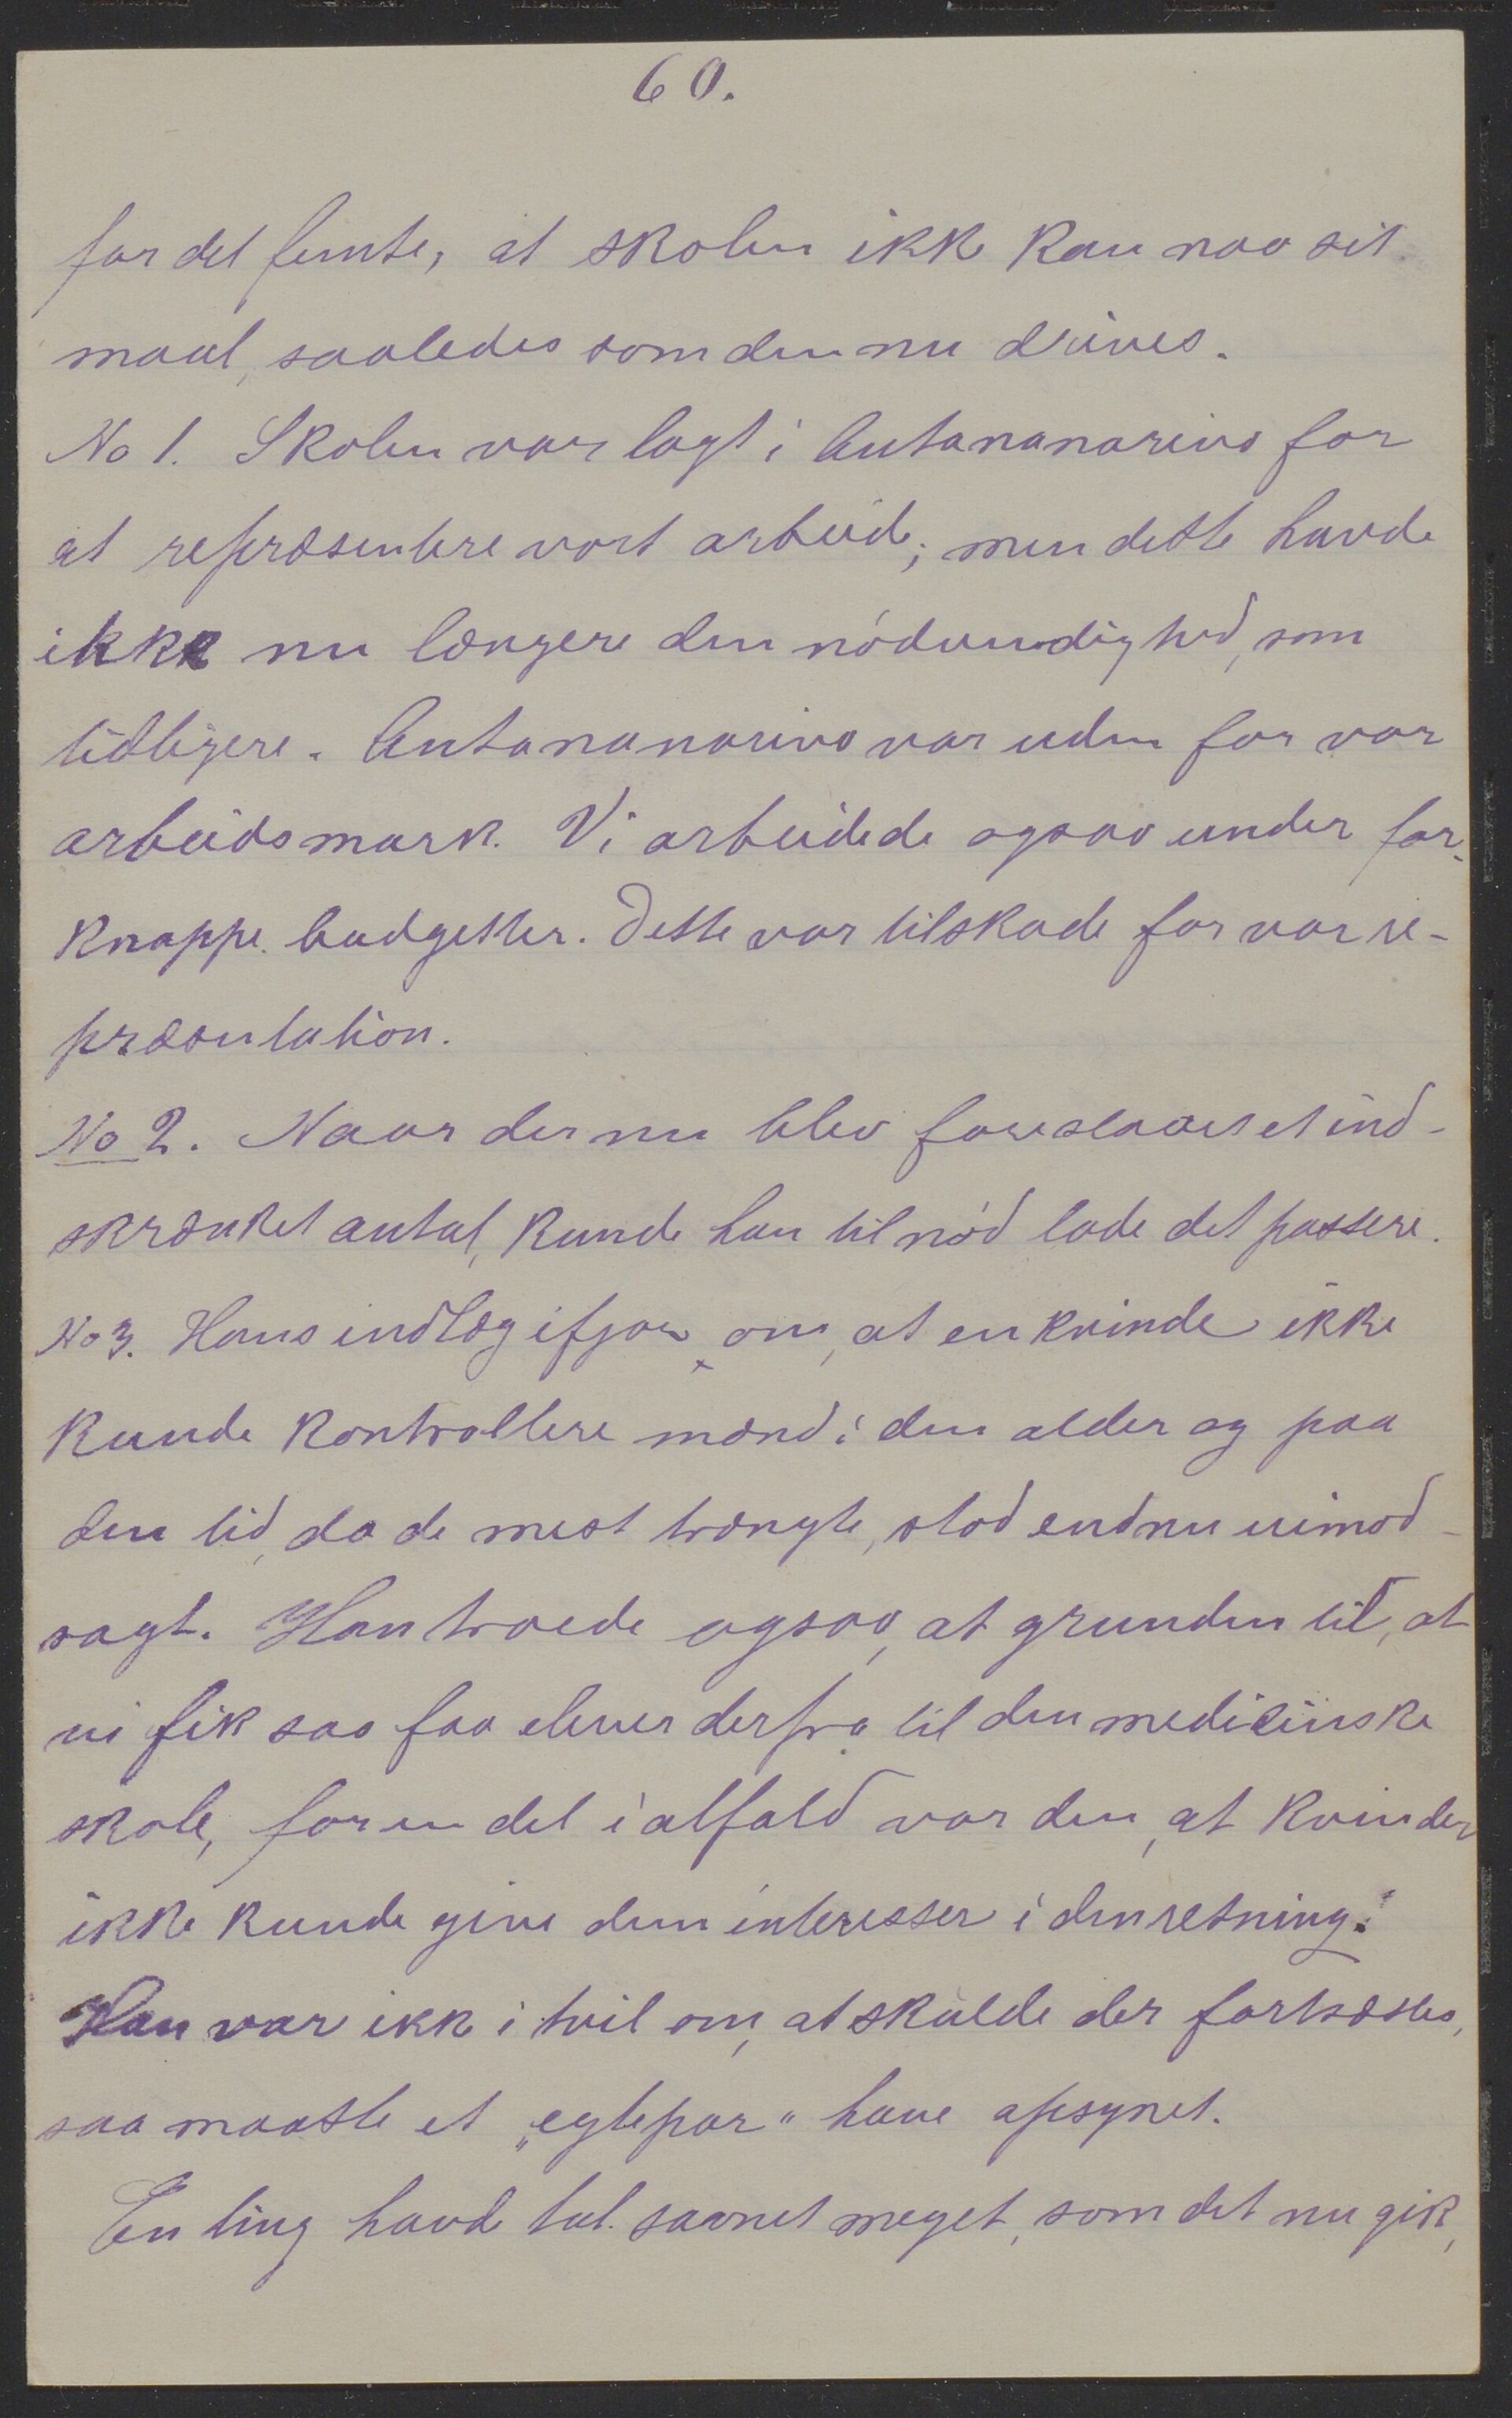 60.
for det femte, at skolen ikke kan naa sit
maal, saaledes som den nu drives.
No 1. Skolen var lagt i Antananarivo for
at repræsentere vort arbeid; men dette havde
ikke nu længere den nódvendighed, som
tidligere. Antananarivo var uden for vor
arbeidsmark. Vi arbeidede ogsaa under for-
knappe budgetter. Dette var tilskade for vor re-
præsentation.
No 2. Naar der nu blev foreslaaet et ind-
skrænket antal, kunde han til nód lade det passere.
No 3. Hans indlæg ifjor om, at en kvinde ikke
kunde kontrollere mænd i den alder og paa
den tid, da de mest trængte, stod endnu uimod-
sagt. Han troede ogsaa, at grunden til, at
vi fik saa faa elever derfra til den medicinske
skole, for en del ialfald var den, at kvinder
ikke kunde give dem interesser i den retning.
Han var ikke i tvil om, at skulde der fortsættes,
saa maatte et „egtepar" have opsynet.
En ting havde tal. savnet meget, som det nu gik,